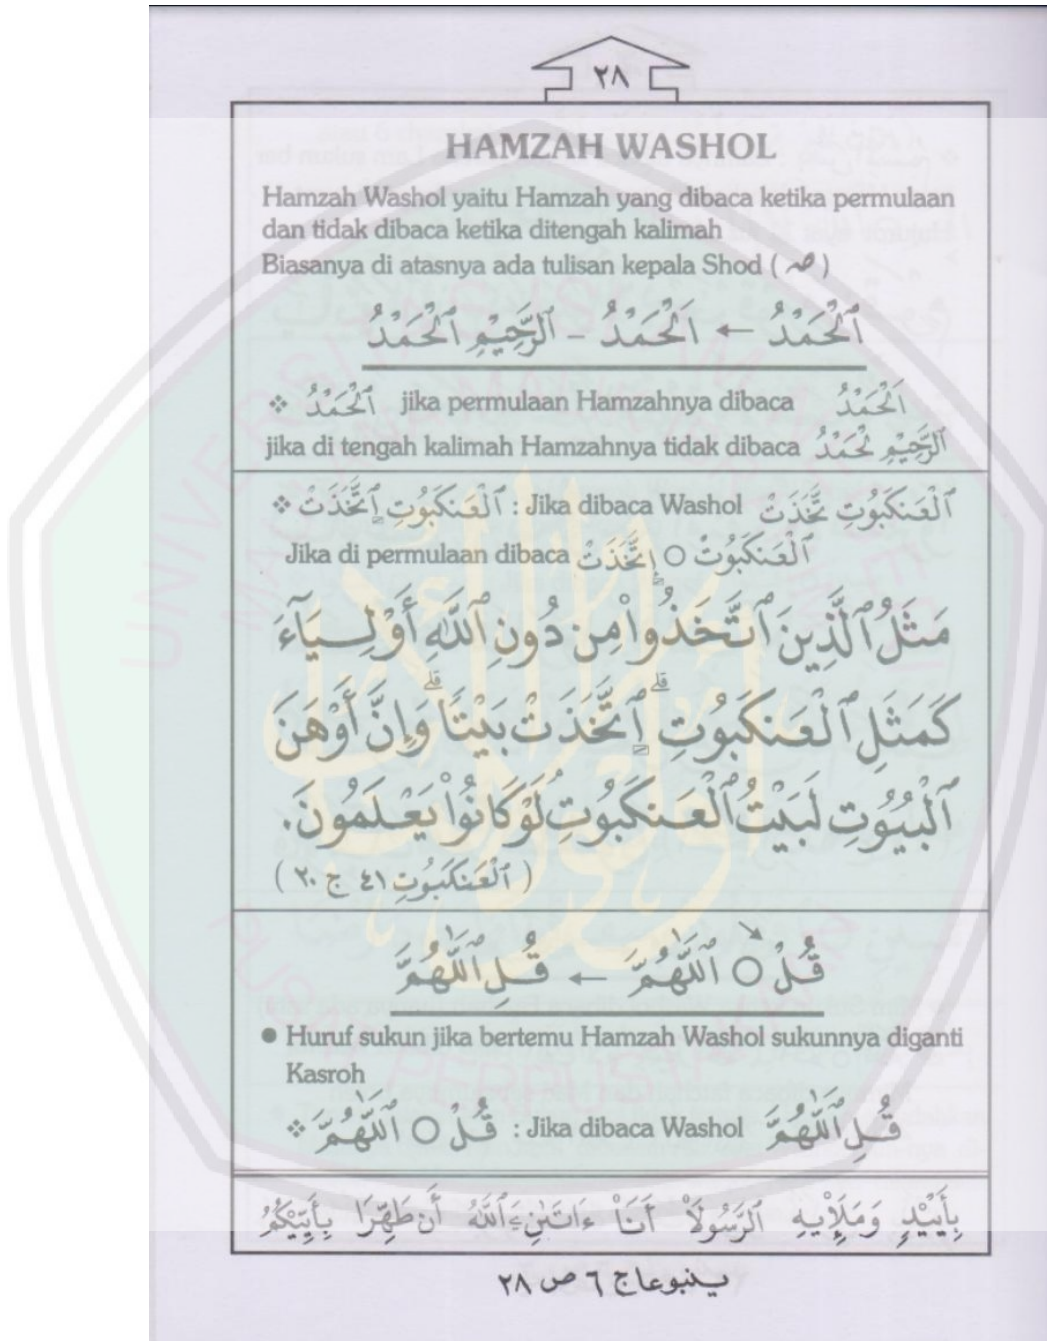 ٢٨
HAMZAH WASHOL
Hamzah Washol yaitu Hamzah yang dibaca ketika permulaan
dan tidak dibaca ketika ditengah kalimah
Biasanya di atasnya ada tulisan kepala Shod ( صـ )
ٱلْحَمْدُ ← اَلْحَمْدُ – ٱلرَّحِيْمِ ٱلْحَمْدُ
❖ ٱلْحَمْدُ jika permulaan Hamzahnya dibaca اَلْحَمْدُ
jika di tengah kalimah Hamzahnya tidak dibaca ٱلرَّحِيْمِ لْحَمْدُ
❖ ٱلْعَنْكَبُوْتِ ٱتَّخَذَتْ : Jika dibaca Washol ٱلْعَنْكَبُوْتِ تَّخَذَتْ
Jika di permulaan dibaca ٱلْعَنْكَبُوْتْ ○ اِتَّخَذَتْ
مَثَلُ ٱلَّذِينَ ٱتَّخَذُوا۟ مِن دُونِ ٱللَّهِ أَوْلِيَآءَ
كَمَثَلِ ٱلْعَنكَبُوتِ ۗ ٱتَّخَذَتْ بَيْتًا ۗ وَإِنَّ أَوْهَنَ
ٱلْبُيُوْتِ لَبَيْتُ ٱلْعَنكَبُوتِ لَوْكَانُوْا يَعْلَمُونَ.
( ٱلْعَنْكَبُوْتِ ٤١ ج ٢٠ )
قُلْ ○ ٱللّٰهُمَّ ← قُلِ ٱللّٰهُمَّ
● Huruf sukun jika bertemu Hamzah Washol sukunnya diganti
Kasroh
❖ قُلْ ○ ٱللّٰهُمَّ : Jika dibaca Washol قُلِ ٱللّٰهُمَّ
بِأَيْيْدٍ وَمَلَإِيْهِ ٱلرَّسُولَا۠ أَنَا۠ ءَاتَىٰنِۦَ ٱللَّهُ أَن طَهِّرَا بِأَيِّيْكُمُ
ينبوعا ج ٦ ص ٢٨